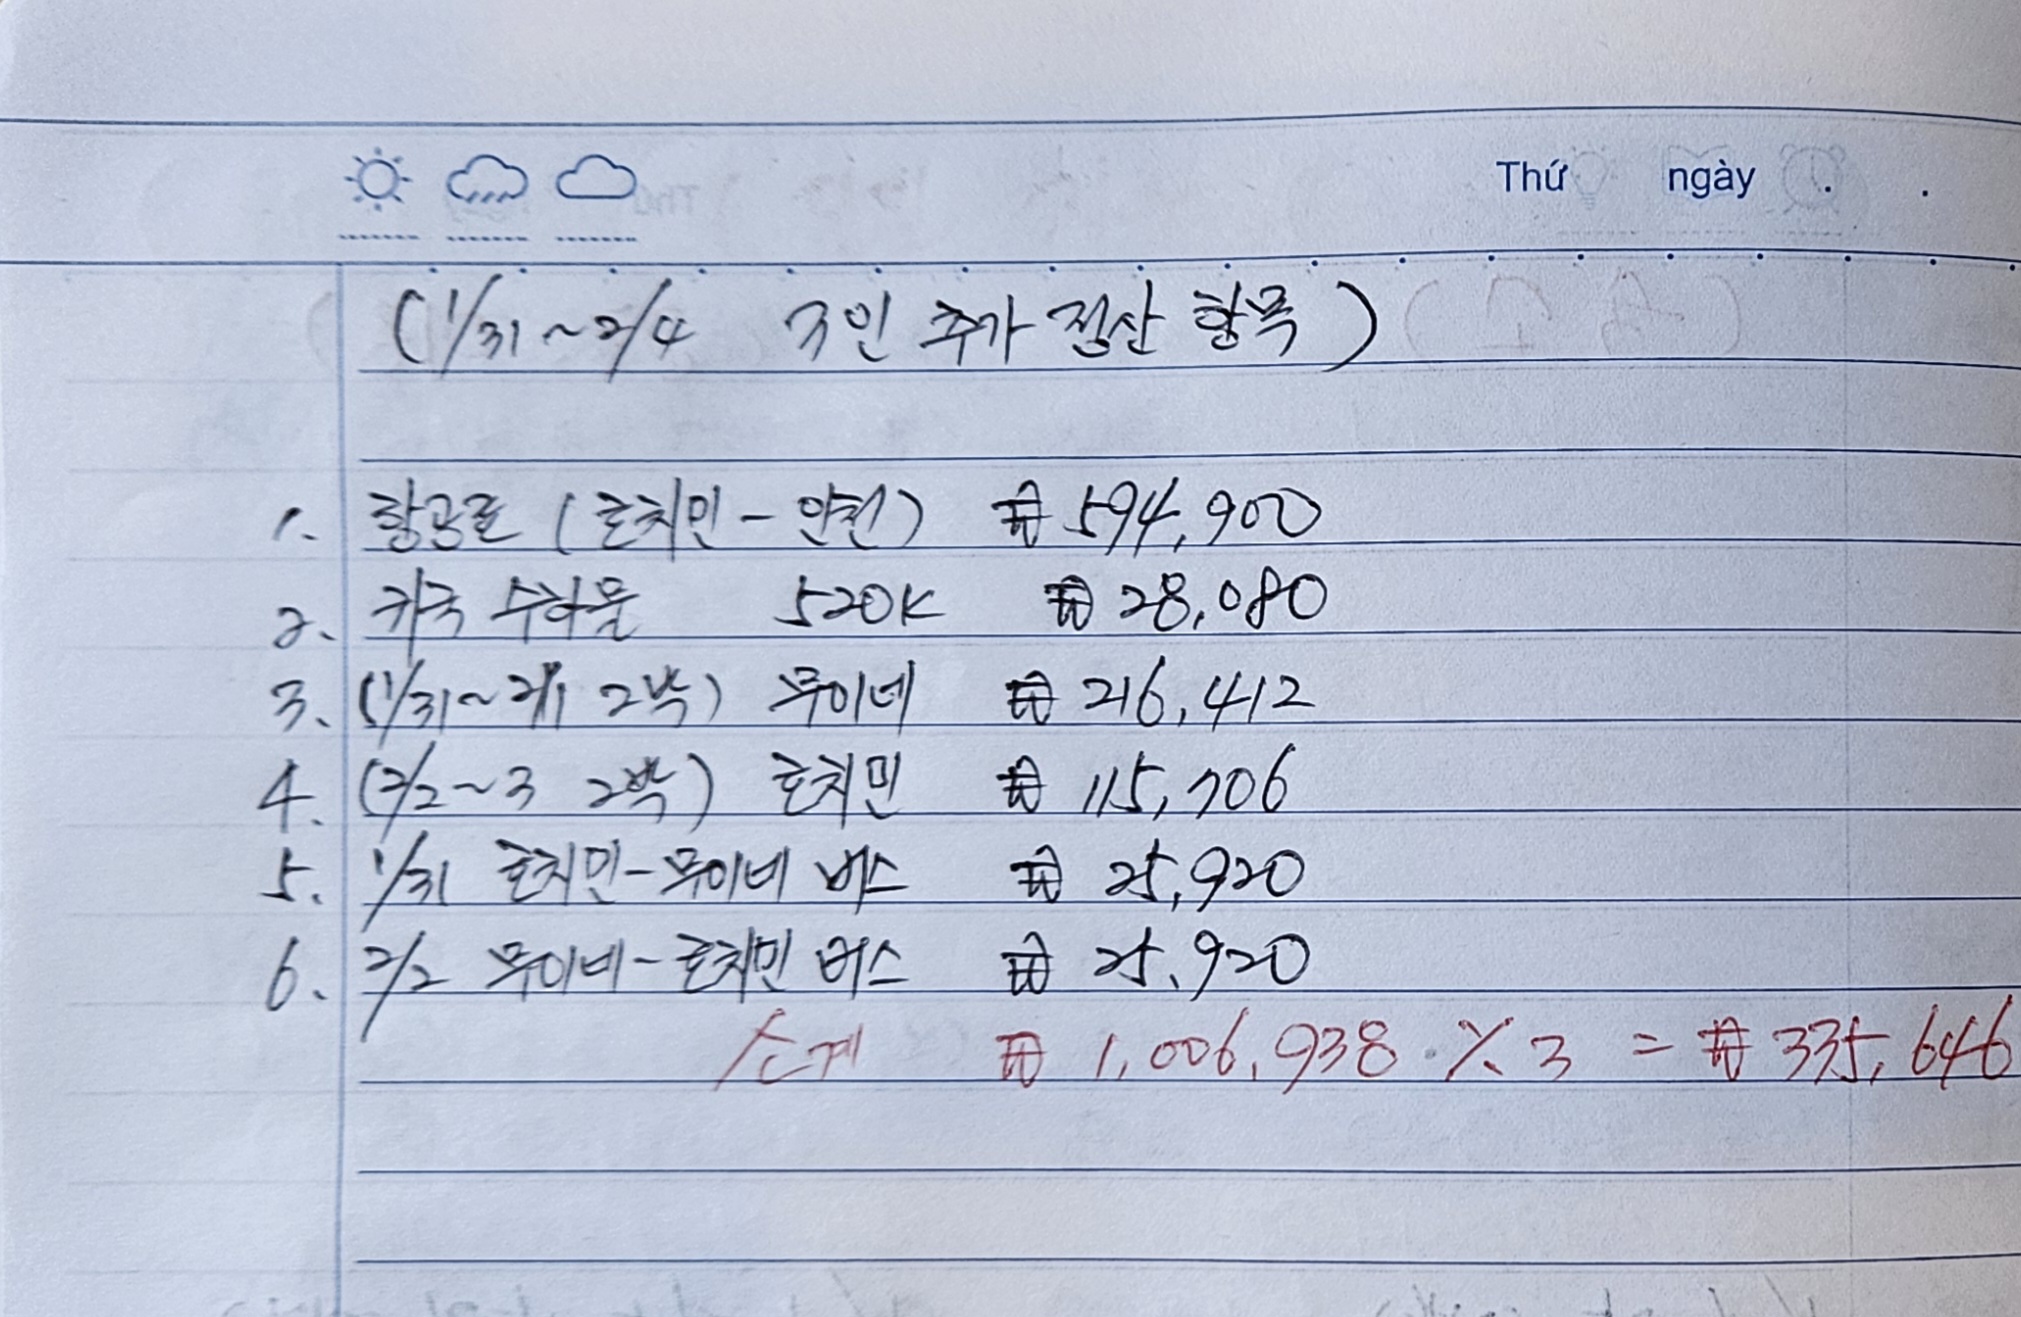 Thứ ngày . .
(1/31~2/4 3인 추가 정산 항목)
1. 항공료 (호치민-인천) ₩594,900
2. 귀국 수하물 520K ₩28,080
3. (1/31~2/1 2박) 무이네 ₩216,412
4. (2/2~3 2박) 호치민 ₩115,706
5. 1/31 호치민-무이네 버스 ₩25,920
6. 2/2 무이네-호치민 버스 ₩25,920
소계 ₩1,006,938 ·/. 3 = ₩335,646